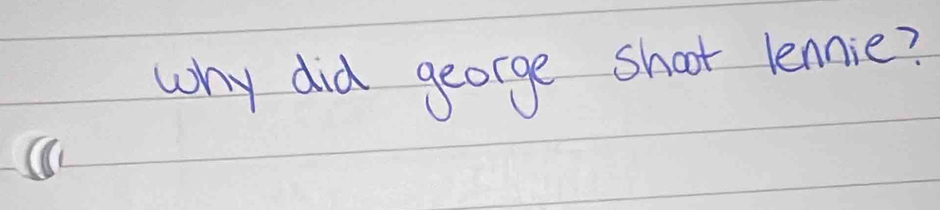 why did george shoot lennie?